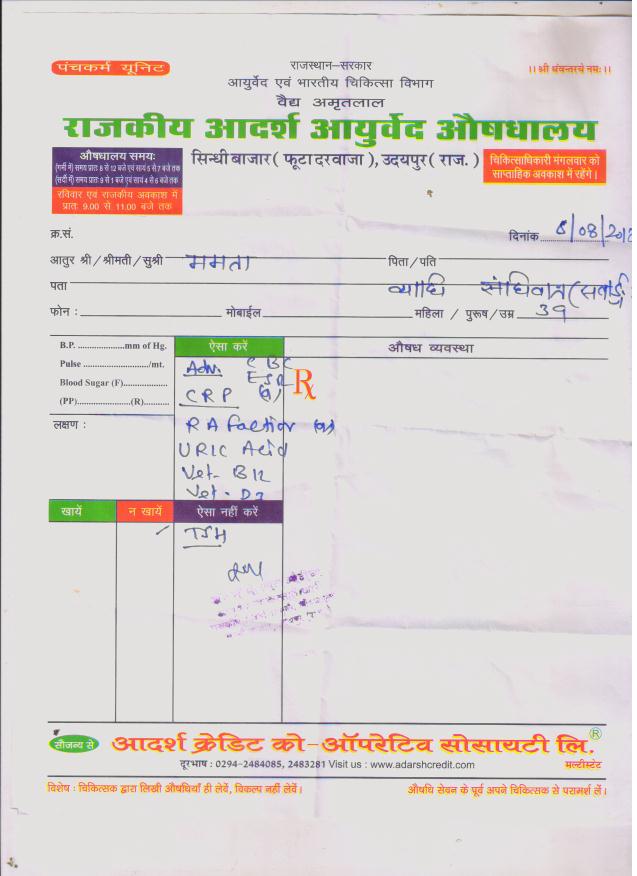 पंचकर्म यूनिट
राजस्थान-सरकार
।। श्री धंवन्तरये नमः ।।
आयुर्वेद एवं भारतीय चिकित्सा विभाग
वैद्य अमृतलाल
राजकीय आदर्श आयुर्वेद औषधालय
औषधालय समयः
(गर्मी में) समय प्रातः 8 से 12 बजे एवं सायं 5 से 7 बजे तक
(सर्दी में) समय प्रातः 9 से 1 बजे एवं सायं 4 से 6 बजे तक
रविवार एवं राजकीय अवकाश में
प्रातः 9.00 से 11.00 बजे तक
सिन्धी बाजार ( फूटा दरवाजा ), उदयपुर ( राज. )
चिकित्साधिकारी मंगलवार को
साप्ताहिक अवकाश में रहेंगे।
क्र.सं.
दिनांक 8/08/201
आतुर श्री/श्रीमती/सुश्री ममता पिता/पति
पता व्याधि संधिवात
फोन : मोबाईल महिला / पुरूष/उम्र 39
B.P. mm of Hg.
Pulse /mt.
Blood Sugar (F)
(PP) (R)
लक्षण :
ऐसा करें
औषध व्यवस्था
Adv. CBC
ESR
CRP (q)
RA Factor (q)
URIC Acid
Vit- B12
Vit- D3
Rx
खायें
न खायें
ऐसा नहीं करें
TSH
सौजन्य से
आदर्श क्रेडिट को-ऑपरेटिव सोसायटी लि.®
दूरभाष : 0294-2484085, 2483281 Visit us : www.adarshcredit.com
मल्टीस्टेट
विशेष : चिकित्सक द्वारा लिखी औषधियाँ ही लेवें, विकल्प नहीं लेवें।
औषधि सेवन के पूर्व अपने चिकित्सक से परामर्श लें।